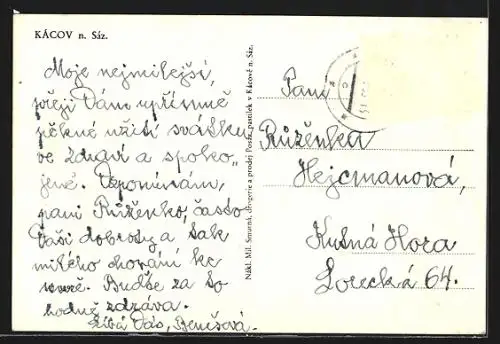 KÁCOV n. Sáz.
Moje nejmilejší,
přeji Vám upřímně
pěkné užití svátku
ve zdraví a spoko-
jeně. Vzpomínám,
paní Růženko, často
Vaší dobroty a tak
milého chování ke
mně. Buďte za to
hodně zdráva.
Líbá Vás, Benešová.
Nákl. Mil. Smutná, drogerie a prodej Posáz. pastilek v Kácově n. Sáz.
Paní
Růženka
Hejcmanová,
Kutná Hora
Lorecká 64.